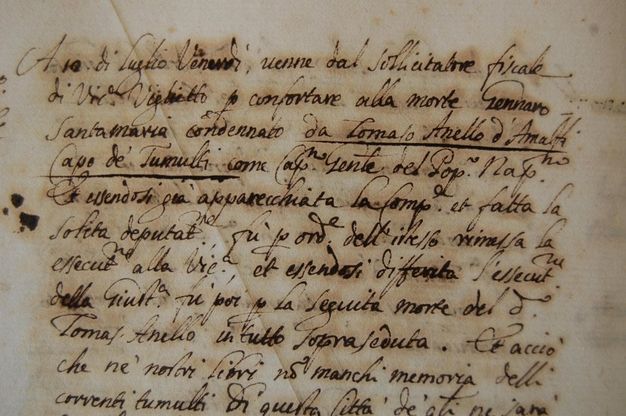 A 12 di luglio Venerdi, venne dal sollicitatore fiscale
di Vic.ª Viglietto p confortare alla morte Gennaro
Santamaria condennato da Tomaso Anello d'Amalfi
Capo de' Tumulti come Cap.ⁿ Gente. del Pop.º Nap.ⁿᵒ
Et essendosi già apparecchiata la Comp.ª et fatta la
solita deputat.ⁿᵉ fù p ord.ᵉ dell'istesso rimessa la
essecut.ⁿᵉ alla Vic.ª, et essendosi differita l'essecut.ⁿᵉ
della Giust.ª fù poi p la seguita morte del d.º
Tomas' Anello in tutto sopraseduta. Et acciò
che ne' nostri libri nō manchi memoria delli
correnti tumulti di questa Città de' qli ne sarà